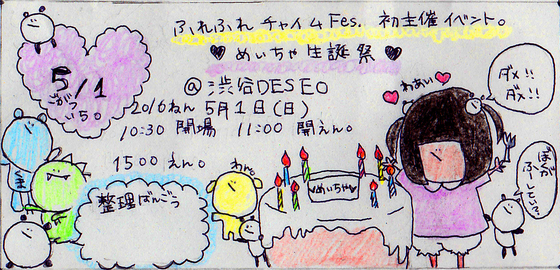 ふれふれチャイムFes. 初主催イベント。
♥ めいちゃ生誕祭 ♥
@渋谷DESEO
2016ねん 5月1日(日)
10:30 開場 11:00 開えん。
1500 えん。
5/1
ごがつ
いち。
整理ばんごう
くま
わん。
♥めいちゃ♥
わあい
ダメ!!
ダメ!!